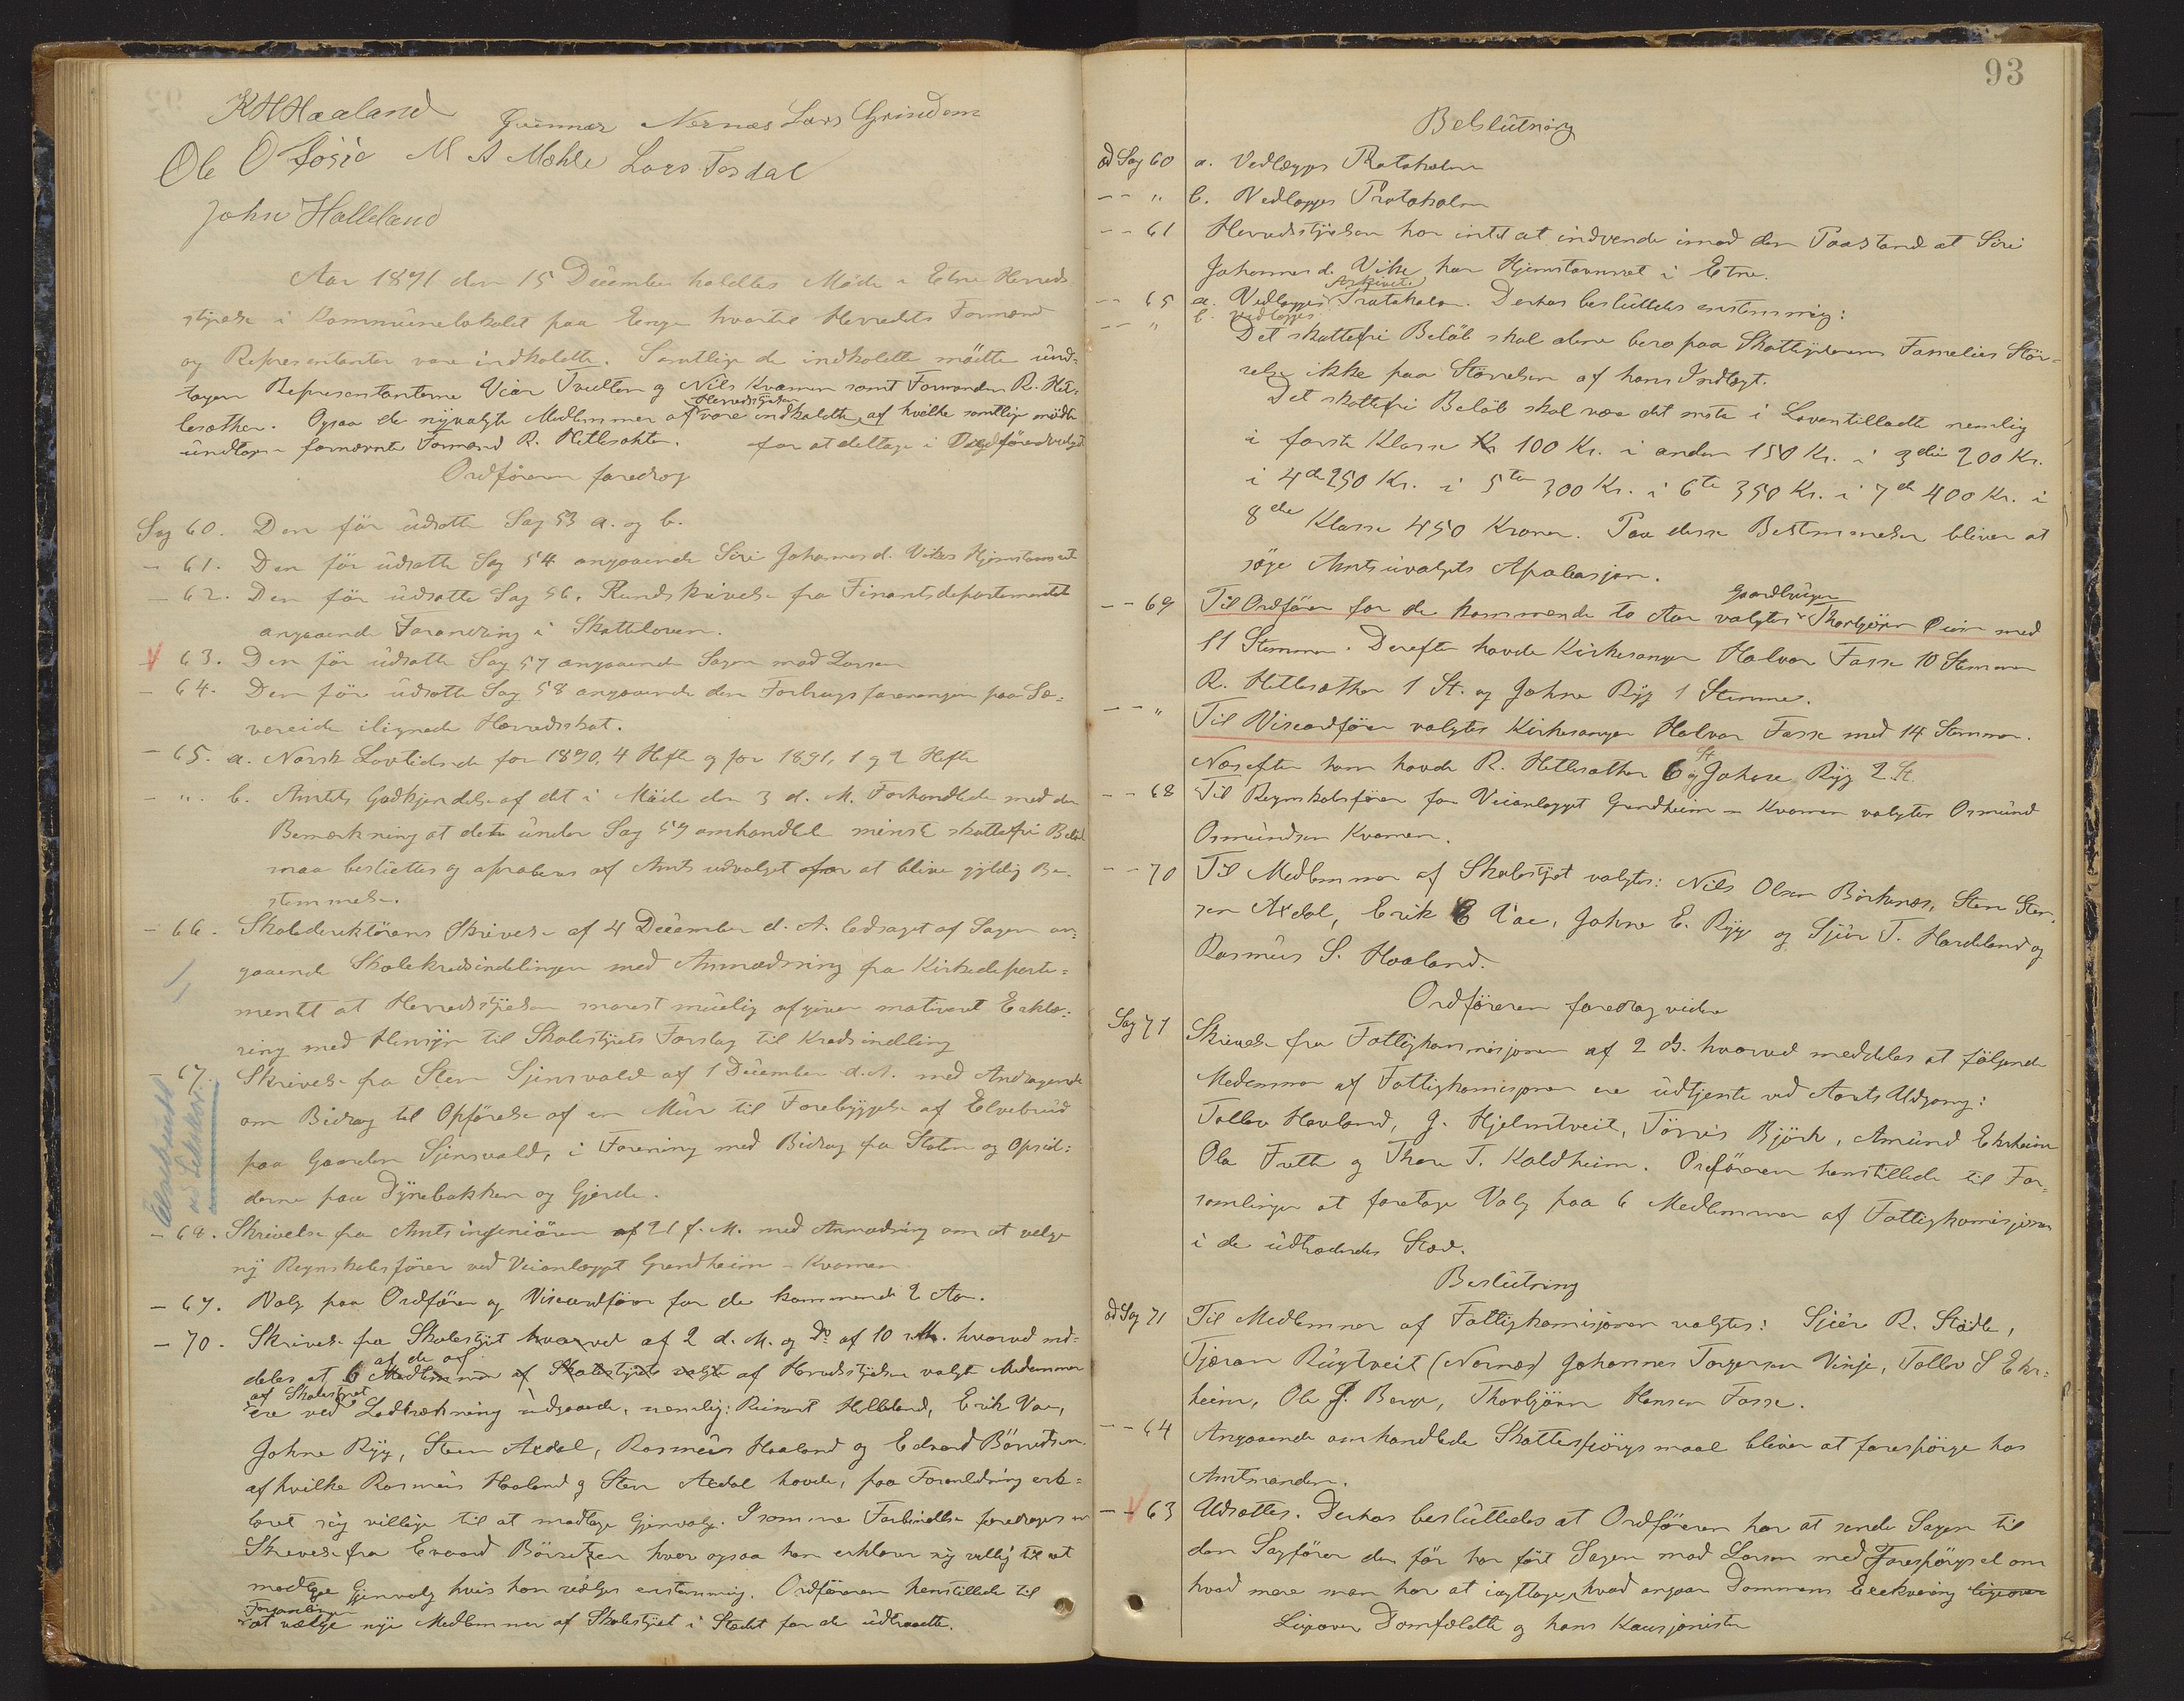 K H Haaland Gunnar Nernæs Lars Grindem
Ole O Løsie M A Mæhle Lars Tesdal
John Halleland
Aar 1891 den 15 December holdtes Möde i Etne Herreds
styrelse i Kommunelokalet paa Enge hvortil Herredets Formænd
og Representanter vare indkaldte. Samtlige de indkaldte mødte und-
tagen Representanterne Viar Tvedten og Nils Kvamen samt Formanden R. Het-
lesæther. Ogsaa de nyvalgte Medlemmer af Herredsstyrelsen vare indkaldte af hvilke samtlige mødte
undtagen fornævnte Formand R. Hetlesæhter. for at deltage i Ordførervalget
Ordføreren foredrog
Sag 60. Den før udsatte Sag 53 a. og b.
- 61. Den før udsatte Sag 54 angaaende Siri Johannesd. Vikes Hjemstavnsret
- 62. Den før udsatte Sag 56, Rundskrivelse fra Finantsdepartementet
angaaende Forandring i Skatteloven.
V 63. Den før udsatte Sag 57 angaaende Sagen mod Larsen
- 64. Den før udsatte Sag 58 angaaende den Forbrugsforeningen paa Sæ-
vereide ilignede Herredsskat.
- 65. a. Norsk Lovtidende for 1890, 4 Hefte og for 1891, 1 og 2 Hefte
- ". b. Amtets Godkjendelse af det i Møde den 3 d. M. Forhandlede med den
Bemærkning at det under Sag 59 omhandlede minste skattefri Beløb
maa besluttes og aproberes af Amtsudvalget for at blive gyldig Be-
stemmelse.
- 66. Skoledirektørens Skrivelse af 4 December d. A. ledsaget af Sagen an-
gaaende Skolekredsindelingen med Anmodning fra Kirkedeparte-
mentet at Herredsstyrelsen snarest muelig afgiver motiveret Erklæ-
ring med Hensyn til Skolestyrets Forslag til Kredsindeling
- 67. Skrivelse fra Sten Sjensvold af 1 December d. A. med Andragende
om Bidrag til Opførelse af en Mur til Forebyggelse af Elvebrud
paa Gaarden Sjensvold, i Forening med Bidrag fra Staten og Opsid-
derne paa Dynebakken og Gjerde.
- 68. Skrivelse fra Amtsingeniøren af 21 f. M. med Anmodning om at velge
ny Regnskabsfører ved Veianlægget Grindheim - Kvamen
- 69. Valg paa Ordfører og Viseordfører for de kommende 2 Aar.
- 70. Skrivelse fra Skolestyret hvorved af 2 d. M. og Do af 10 s. M. hvorved med-
deles at 6 af de af Medlemmer af Skolestyrets valgte af Herredsstyrelsen valgte Medlemmer
af Skolestyret
ere ved Lodtrækning udgaaede, nemlig: Reinert Helleland, Erik Vae,
Johne Ryg, Steen Axdal, Rasmus Haaland og Edvard Børretzen
af hvilke Rasmus Haaland og Sten Axdal havde, paa Foranledning erk-
læret sig villige til at modtage Gjenvalg. I samme Forbindelse foredroges en
Skrivelse fra Evard Børretzen hvor ogsaa han erklærer sig villig til at
modtage Gjenvalg hvis han vælges enstemmig. Ordføreren henstillede til
Forsamlingen
at vælge nye Medlemmer af Skolestyret i Stedet for de udtraadte.
93
Beslutning
ad Sag 60 a. Vedlægges Protokolen
- - " b. Vedlægges Protokolen
- - 61 Herredsstyrelsen har intet at indvende imod den Paastand at Siri
Johannesd. Vike har Hjemstavnsret i Etne.
- - 65 a. Vedlægges Arkivet. Protokolen. Derhos besluttedes enstemmig:
- - " b. vedlægges
Det skattefri Beløb skal alene bero paa Skatteyderens Famelies Stør-
relse ikke paa Størrelsen af hans Indtægt.
Det skattefri Beløb skal være det meste i Loven tilladte nemlig
i første Klasse Kr 100 Kr. i anden 150 Kr. i 3die 200 Kr.
i 4de 250 Kr. i 5te 300 Kr. i 6te 350 Kr. i 7de 400 Kr. i
8de Klasse 450 Kroner. Paa disse Bestemmelser bliver at
søge Amtsuvalgets Aprobasjon.
- - 69 Til Ordfører for de kommende to Aar valgtes Gaardbruger Thorbjørn Øien med
11 Stemmer. Derefter havde Kirkesanger Halvor Fasse 10 Stemmer
R. Hetlesæther 1 St. og Johne Ryg 1 Stemme.
- - " Til Viseordfører valgtes Kirkesanger Halvor Fasse med 14 Stemmer.
Næsefter ham havde R. Hetlesæther 6 St og Johne Ryg 2 St.
- - 68 Til Regnskabsfører for Veianlægget Grindheim - Kvamen valgtes Osmund
Osmundsen Kvamen.
- - 70 Til Medlemmer af Skolestyret valgtes: Nils Olsen Børkenæs, Sten Sten-
sen Axdal, Erik E Vae, Johne E. Ryg og Sjur T. Hardeland og
Rasmus S. Haaland.
Ordføreren foredrog videre
Sag 71 Skrivelse fra Fattigkommisjonen af 2 ds. hvorved meddeles at følgende
Medemmer af Fattigkomisjonen ere udtjente ved Aarets Udgang:
Tollev Havland, G. Hjelmtveit, Tørris Bjørk, Amund Ekrheim
Ola Frette og Thore T. Kaldheim. Ordføreren henstillede til For-
samlingen at foretage Valg paa 6 Medlemmer af Fattigkomisjonen
i de udtrædendes Sted.
Beslutning
ad Sag 71 Til Medlemmer af Fattigkomisjonen valgtes: Sjur R. Stødle,
Tjæran Rugtveit (Nernæs) Johannes Torgersen Vinje, Tollev S Ekr-
heim, Ole J. Berge, Thorbjørn Hansen Fosse.
- - 64 Angaaende omhandlede Skattespørgsmaal bliver at forespørge hos
Amtmanden.
- V 63 Udsættes. Derhos besluttedes at Ordføreren har at sende Sagen til
den Sagfører der før har ført Sagen mod Larsen med Forespørgsel om
hvad mere man har at iagttage, hvad angaar Dommens Exekvering ligeover
Ligeover Domfældte og hans Kausjonister